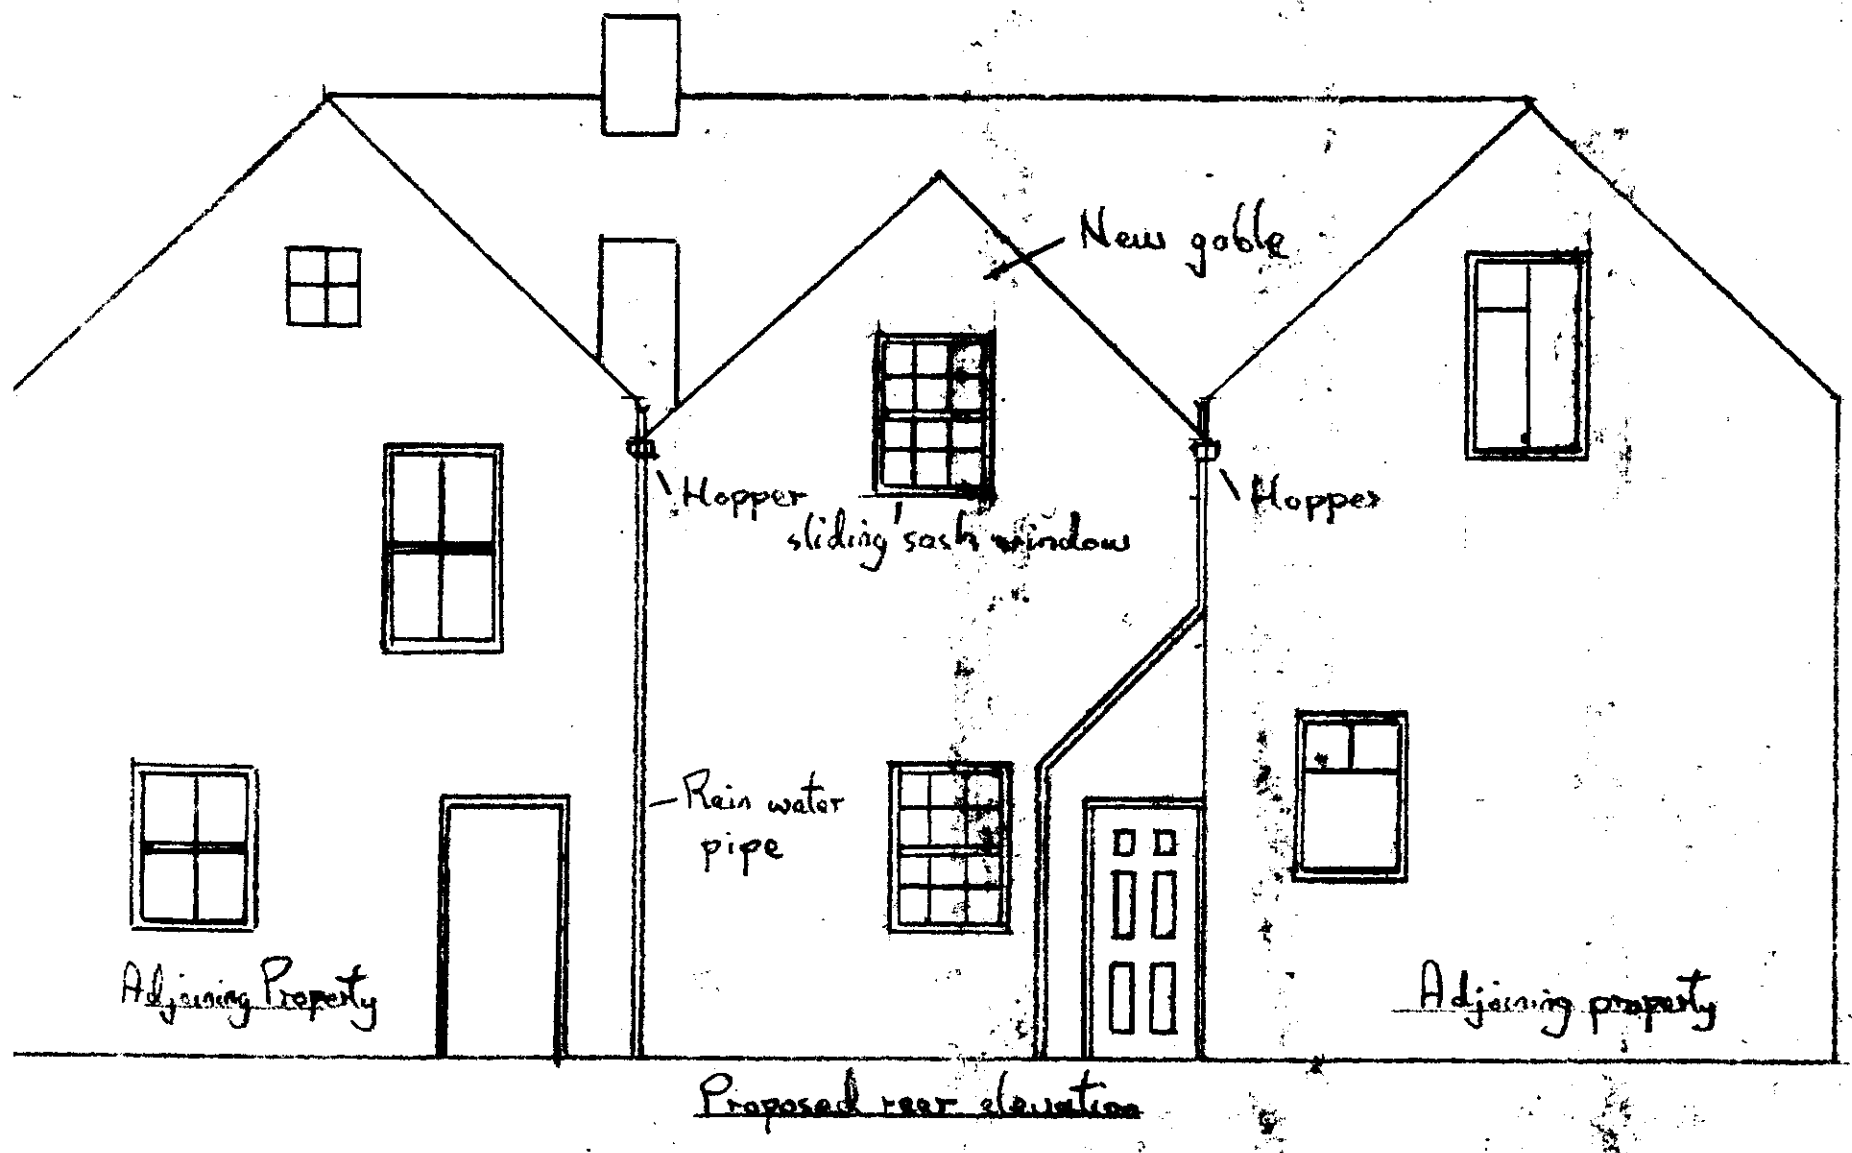 New gable
Hopper
Hopper
sliding sash window
Rain water
pipe
Adjoining Property
Adjoining property
Proposed rear elevation